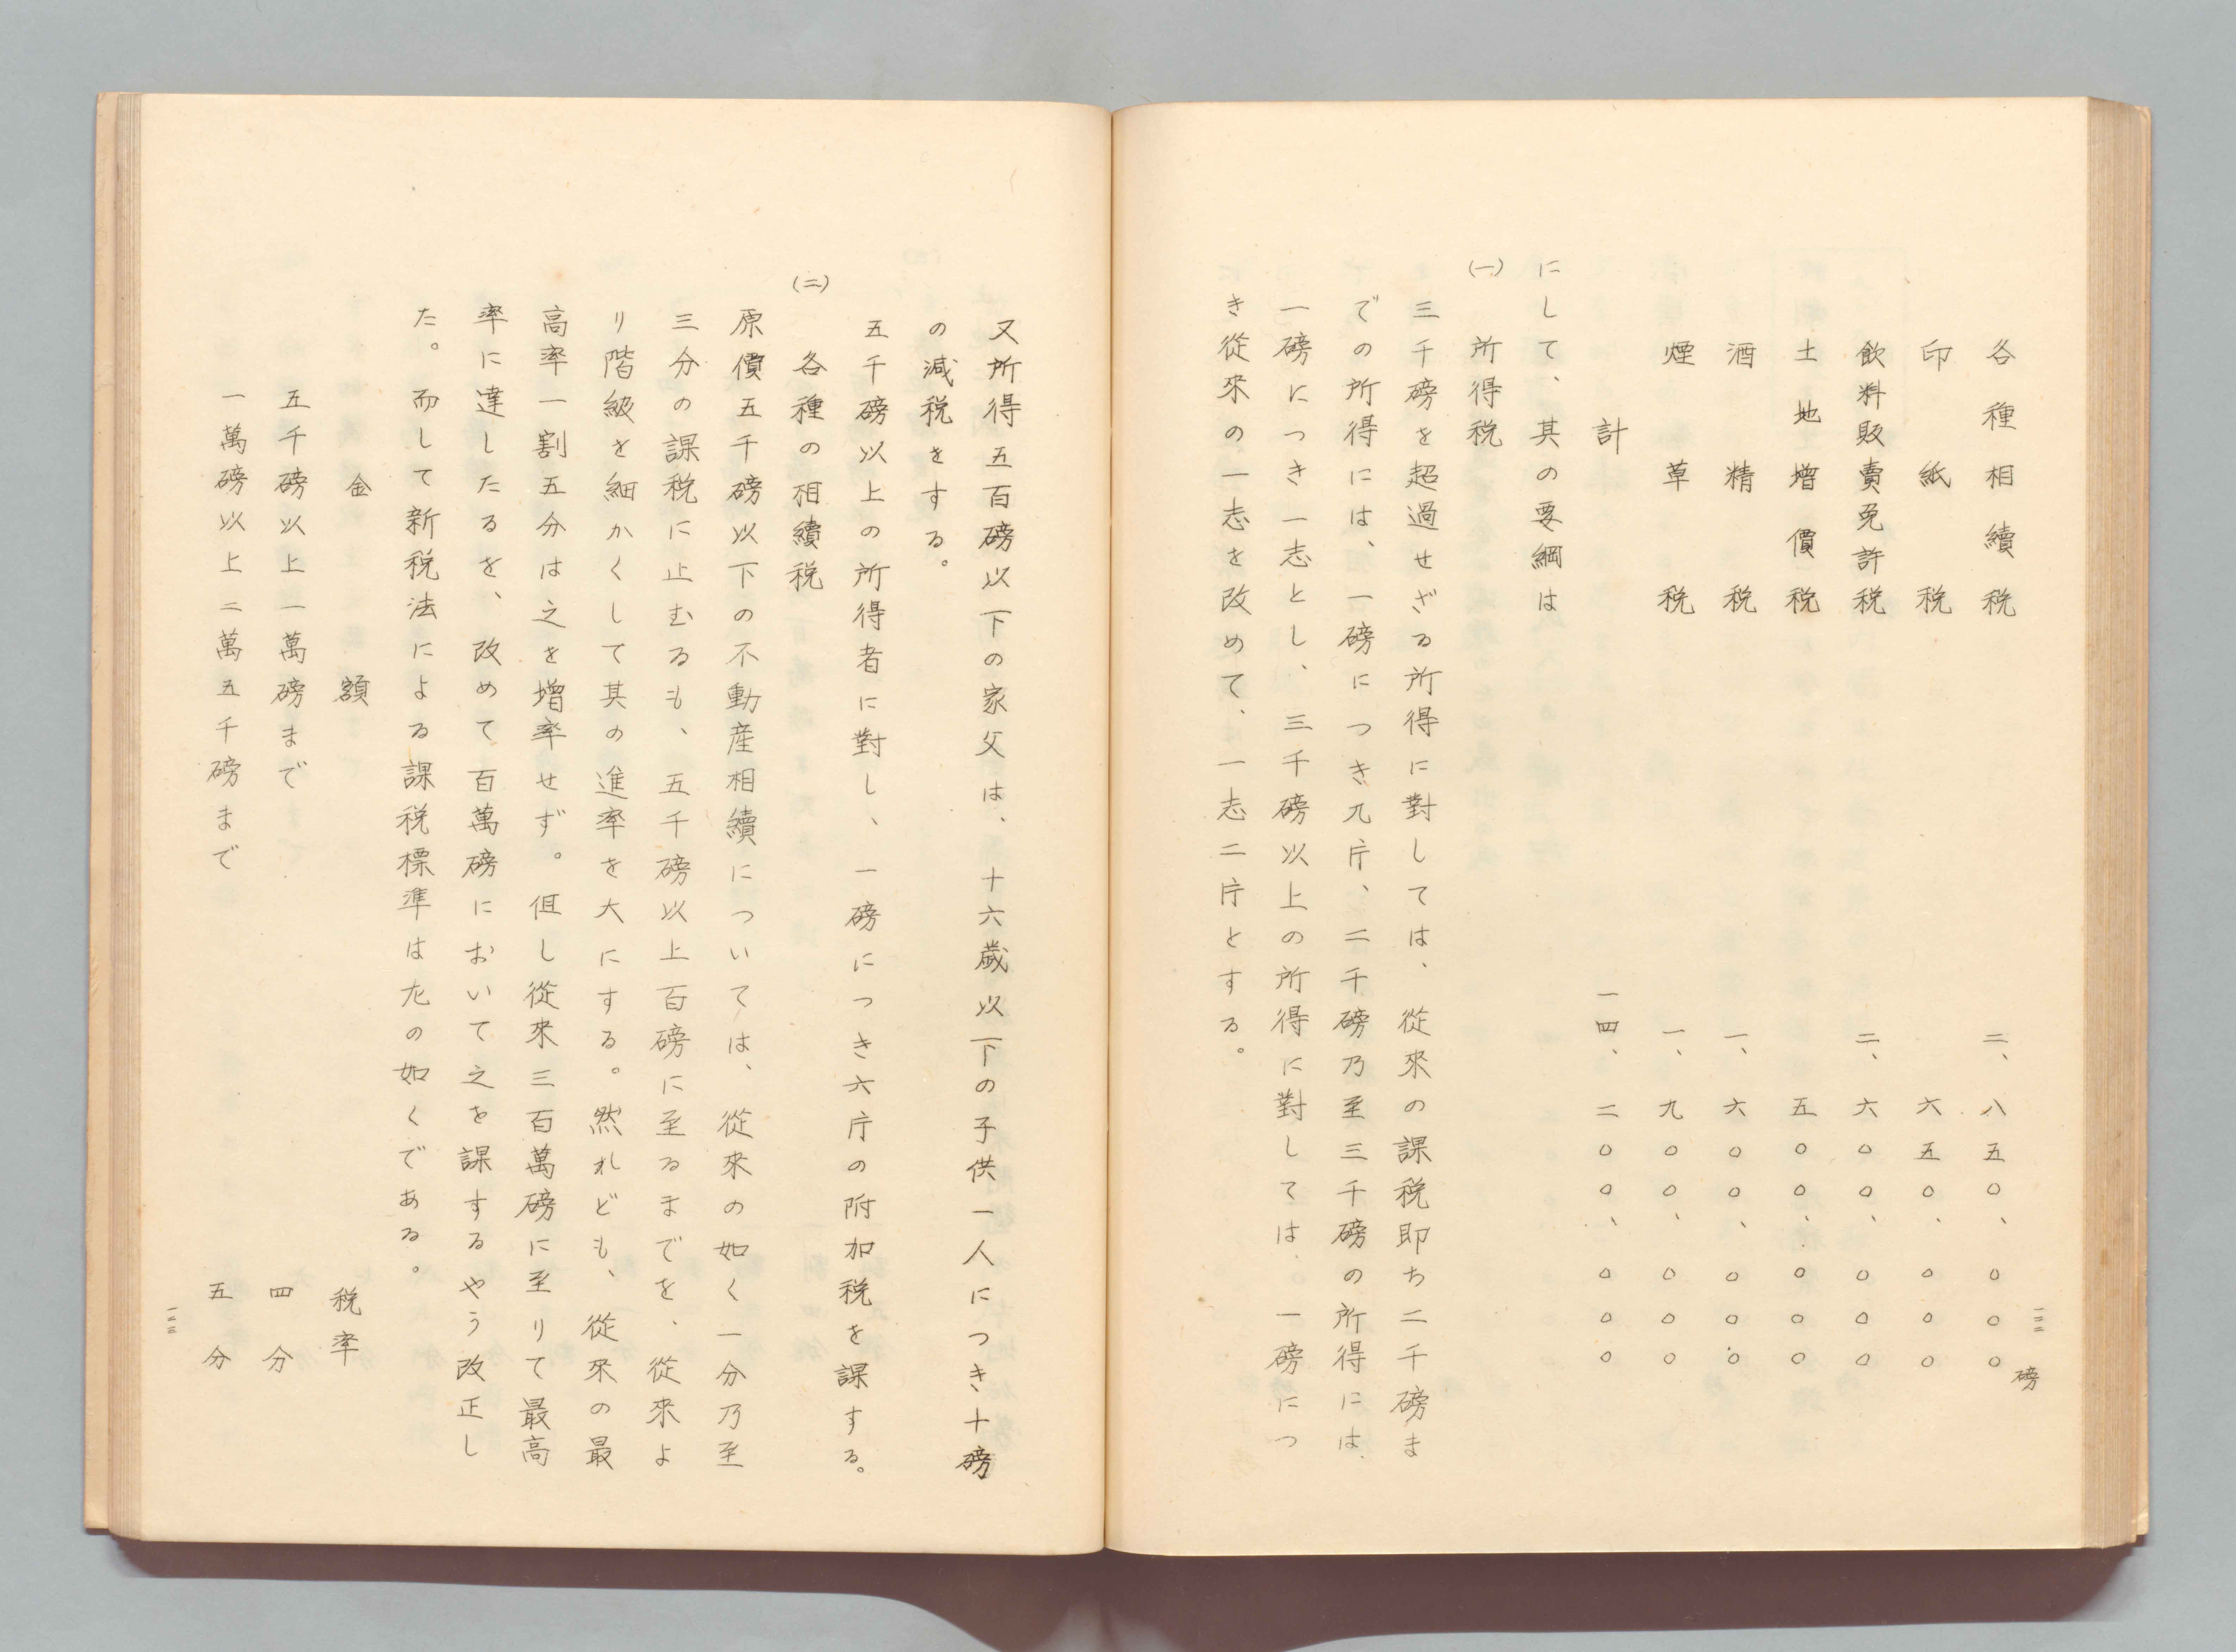 各種相續税 二、八五〇、〇〇〇磅
印紙税 六五〇、〇〇〇
飲料販賣免許税 二、六〇〇、〇〇〇
土地增價税 五〇〇、〇〇〇
酒精税 一、六〇〇、〇〇〇
煙草税 一、九〇〇、〇〇〇
計 一四、二〇〇、〇〇〇
にして、其の要綱は
(一) 所得税
三千磅を超過せざる所得に對しては、從來の課税即ち二千磅ま
での所得には、一磅につき九片、二千磅乃至三千磅の所得には、
一磅につき一志とし、三千磅以上の所得に對しては、一磅につ
き從來の一志を改めて、一志二片とする。
又所得五百磅以下の家父は、十六歲以下の子供一人につき十磅
の減税をする。
五千磅以上の所得者に對し、一磅につき六片の附加税を課する。
(二) 各種の相續税
原價五千磅以下の不動産相續については、從來の如く一分乃至
三分の課税に止むるも、五千磅以上百磅に至るまでを、從來よ
り階級を細かくして其の進率を大にする。然れども、從來の最
高率一割五分は之を增率せず。但し從來三百萬磅に至りて最高
率に達したるを、改めて百萬磅において之を課するやう改正し
た。而して新税法による課税標準は左の如くである。
金額 税率
五千磅以上一萬磅まで 四分
一萬磅以上二萬五千磅まで 五分